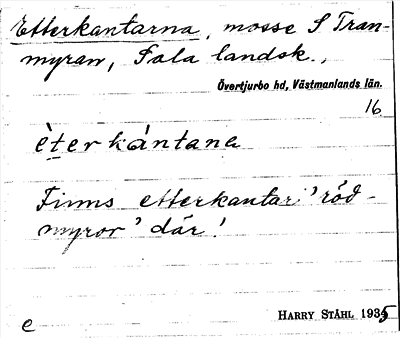 Etterkantarna, mosse S Tran-
myran, Sala landsk.,
Övertjurbo hd, Västmanlands län.
16
èterkántana
Finns etterkantar 'röd-
myror' där!
HARRY STÅHL 1935
e